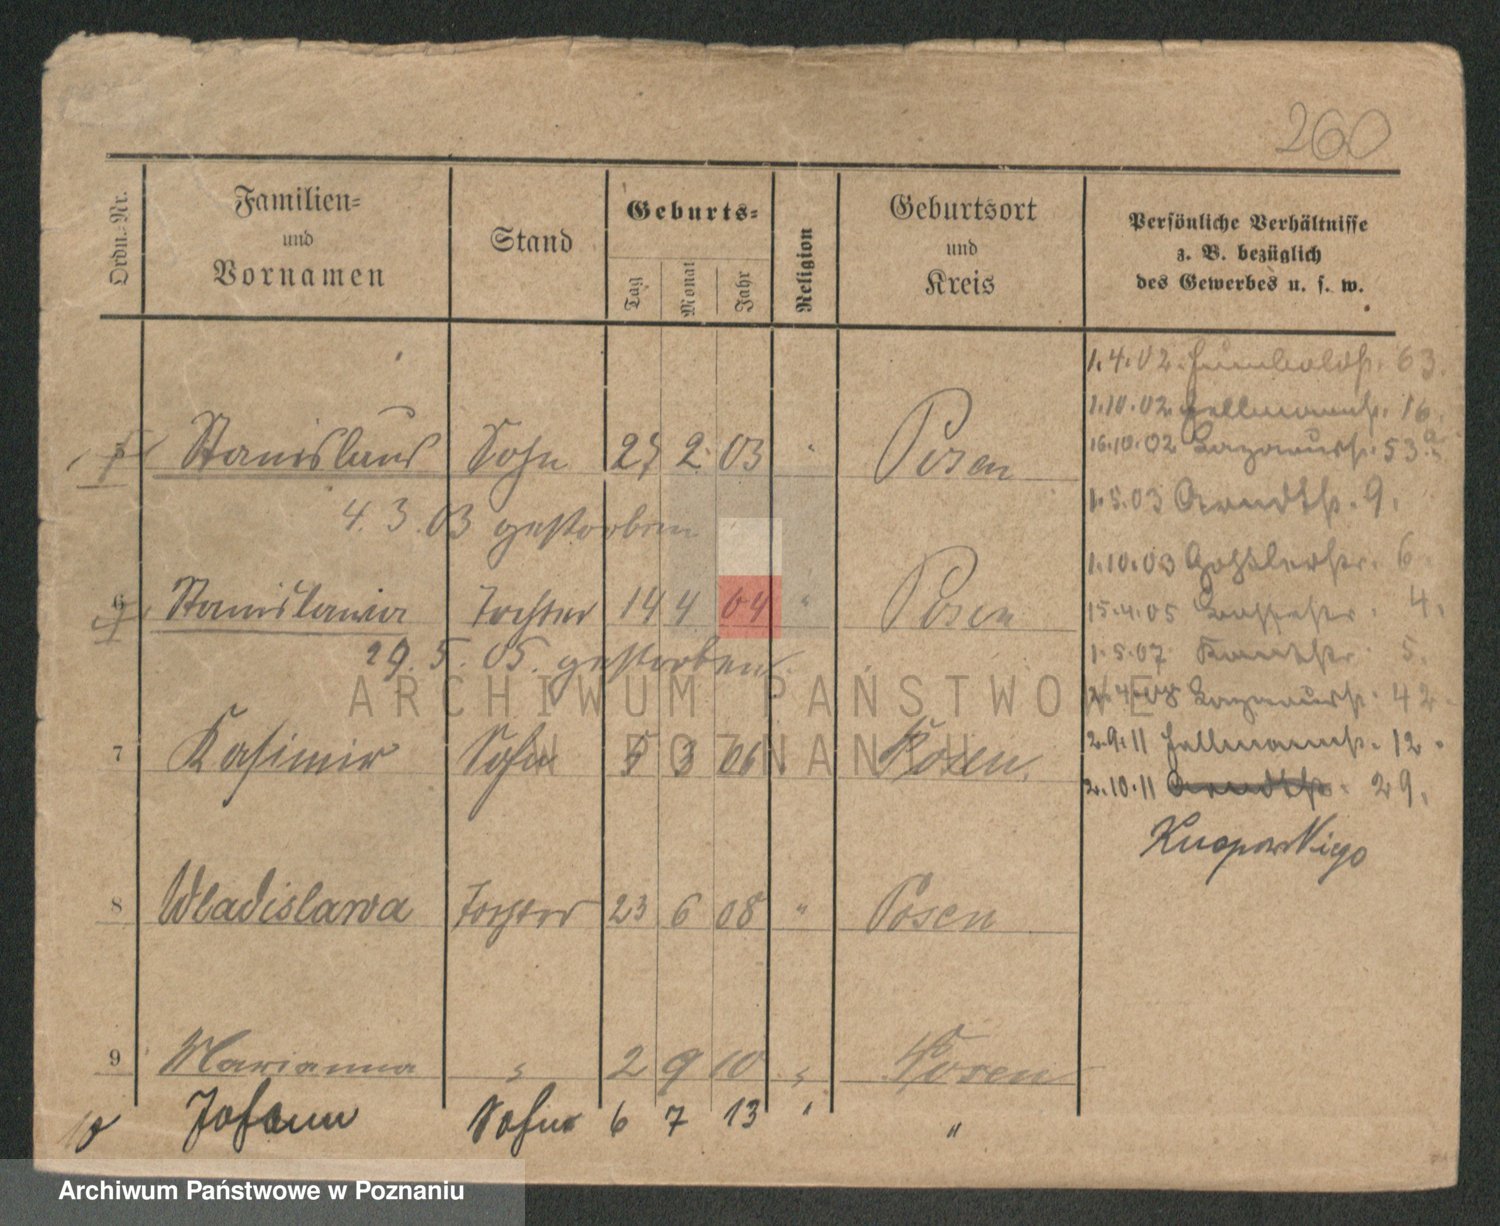 260
Ordn.-Nr.
Familien-
und
Vornamen
Stand
Geburts-
Tag
Monat
Jahr
Religion
Geburtsort
und
Kreis
Persönliche Verhältnisse
z. B. bezüglich
des Gewerbes u. s. w.
1.4.02 Humboldtstr. 63.
1.10.02 Hellmannstr. 16.
16.10.02 Lazarusstr. 53a
1.5.03 Arndtstr. 9.
1.10.03 Goßlerstr. 6.
15.4.05 4.
1.5.07 5.
2.4.08 Lazarusstr. 42.
2.9.11 Hellmannstr. 12.
2.10.11 Arndtstr. 29.
5 Stanislaus Sohn 27 2 03 " Posen
4.3.03 gestorben
6 Stanislawa Tochter 14 4 04 " Posen
29.5.05. gestorben.
7 Kasimir Sohn 5 3 06 Posen.
8 Wladislawa Tochter 23 6 08 " Posen
9 Marianna " 2 9 10 " Posen
10 Johann Sohn 6 7 13 " "
ARCHIWUM PAŃSTWOWE
W POZNANIU
Archiwum Państwowe w Poznaniu